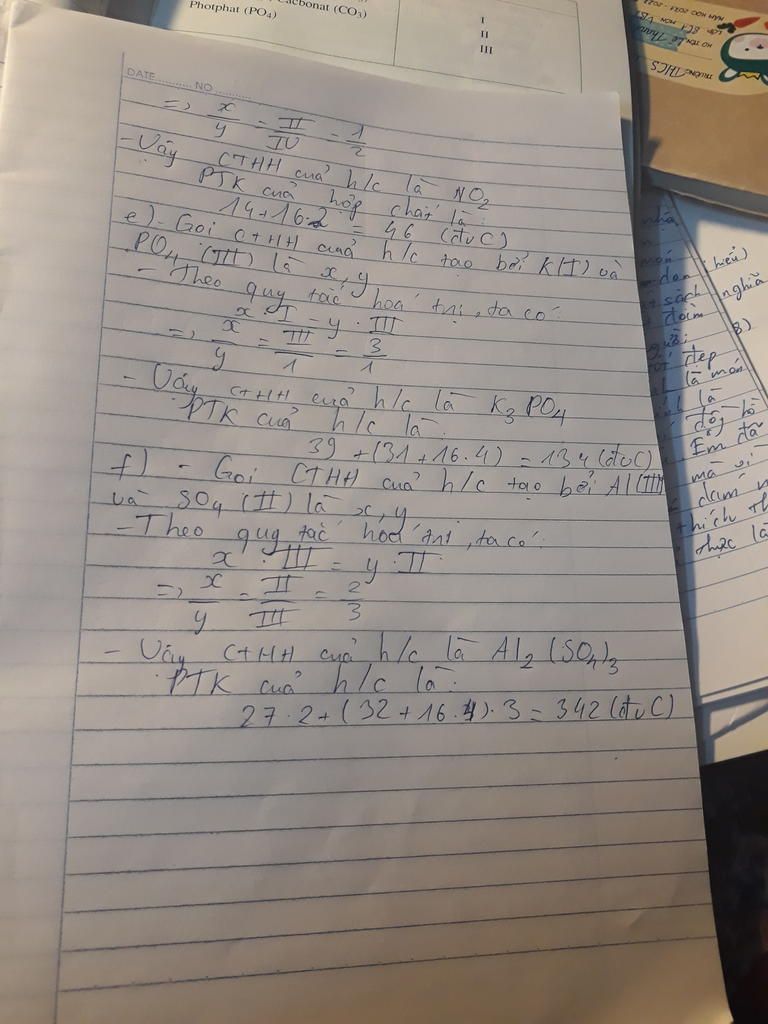 Cacbonat (CO₃)
Photphat (PO₄)
I
II
III
TRƯỜNG THCS
DATE NO
=> x/y = II/IV = 1/2
- Vậy CTHH của h/c là NO₂
PTK của hợp chất là:
14 + 16.2 = 46 (đvC)
e) - Gọi CTHH của h/c tạo bởi K(I) và
PO₄ (III) là x, y
- Theo quy tắc hoá trị, ta có:
x . I = y . III
=> x/y = III/1 = 3/1
- Vậy CTHH của h/c là K₃PO₄
PTK của h/c là:
39 + (31 + 16.4) = 134 (đvC)
f) - Gọi CTHH của h/c tạo bởi Al(III)
và SO₄ (II) là x, y
- Theo quy tắc hoá trị, ta có:
x . III = y . II
=> x/y = II/III = 2/3
- Vậy CTHH của h/c là Al₂(SO₄)₃
PTK của h/c là:
27.2 + (32 + 16.4).3 = 342 (đvC)
hiểu)
sách nghĩa
đẹp
là món
là
đồng hồ
Em đã
mà vì
thích th
thực là